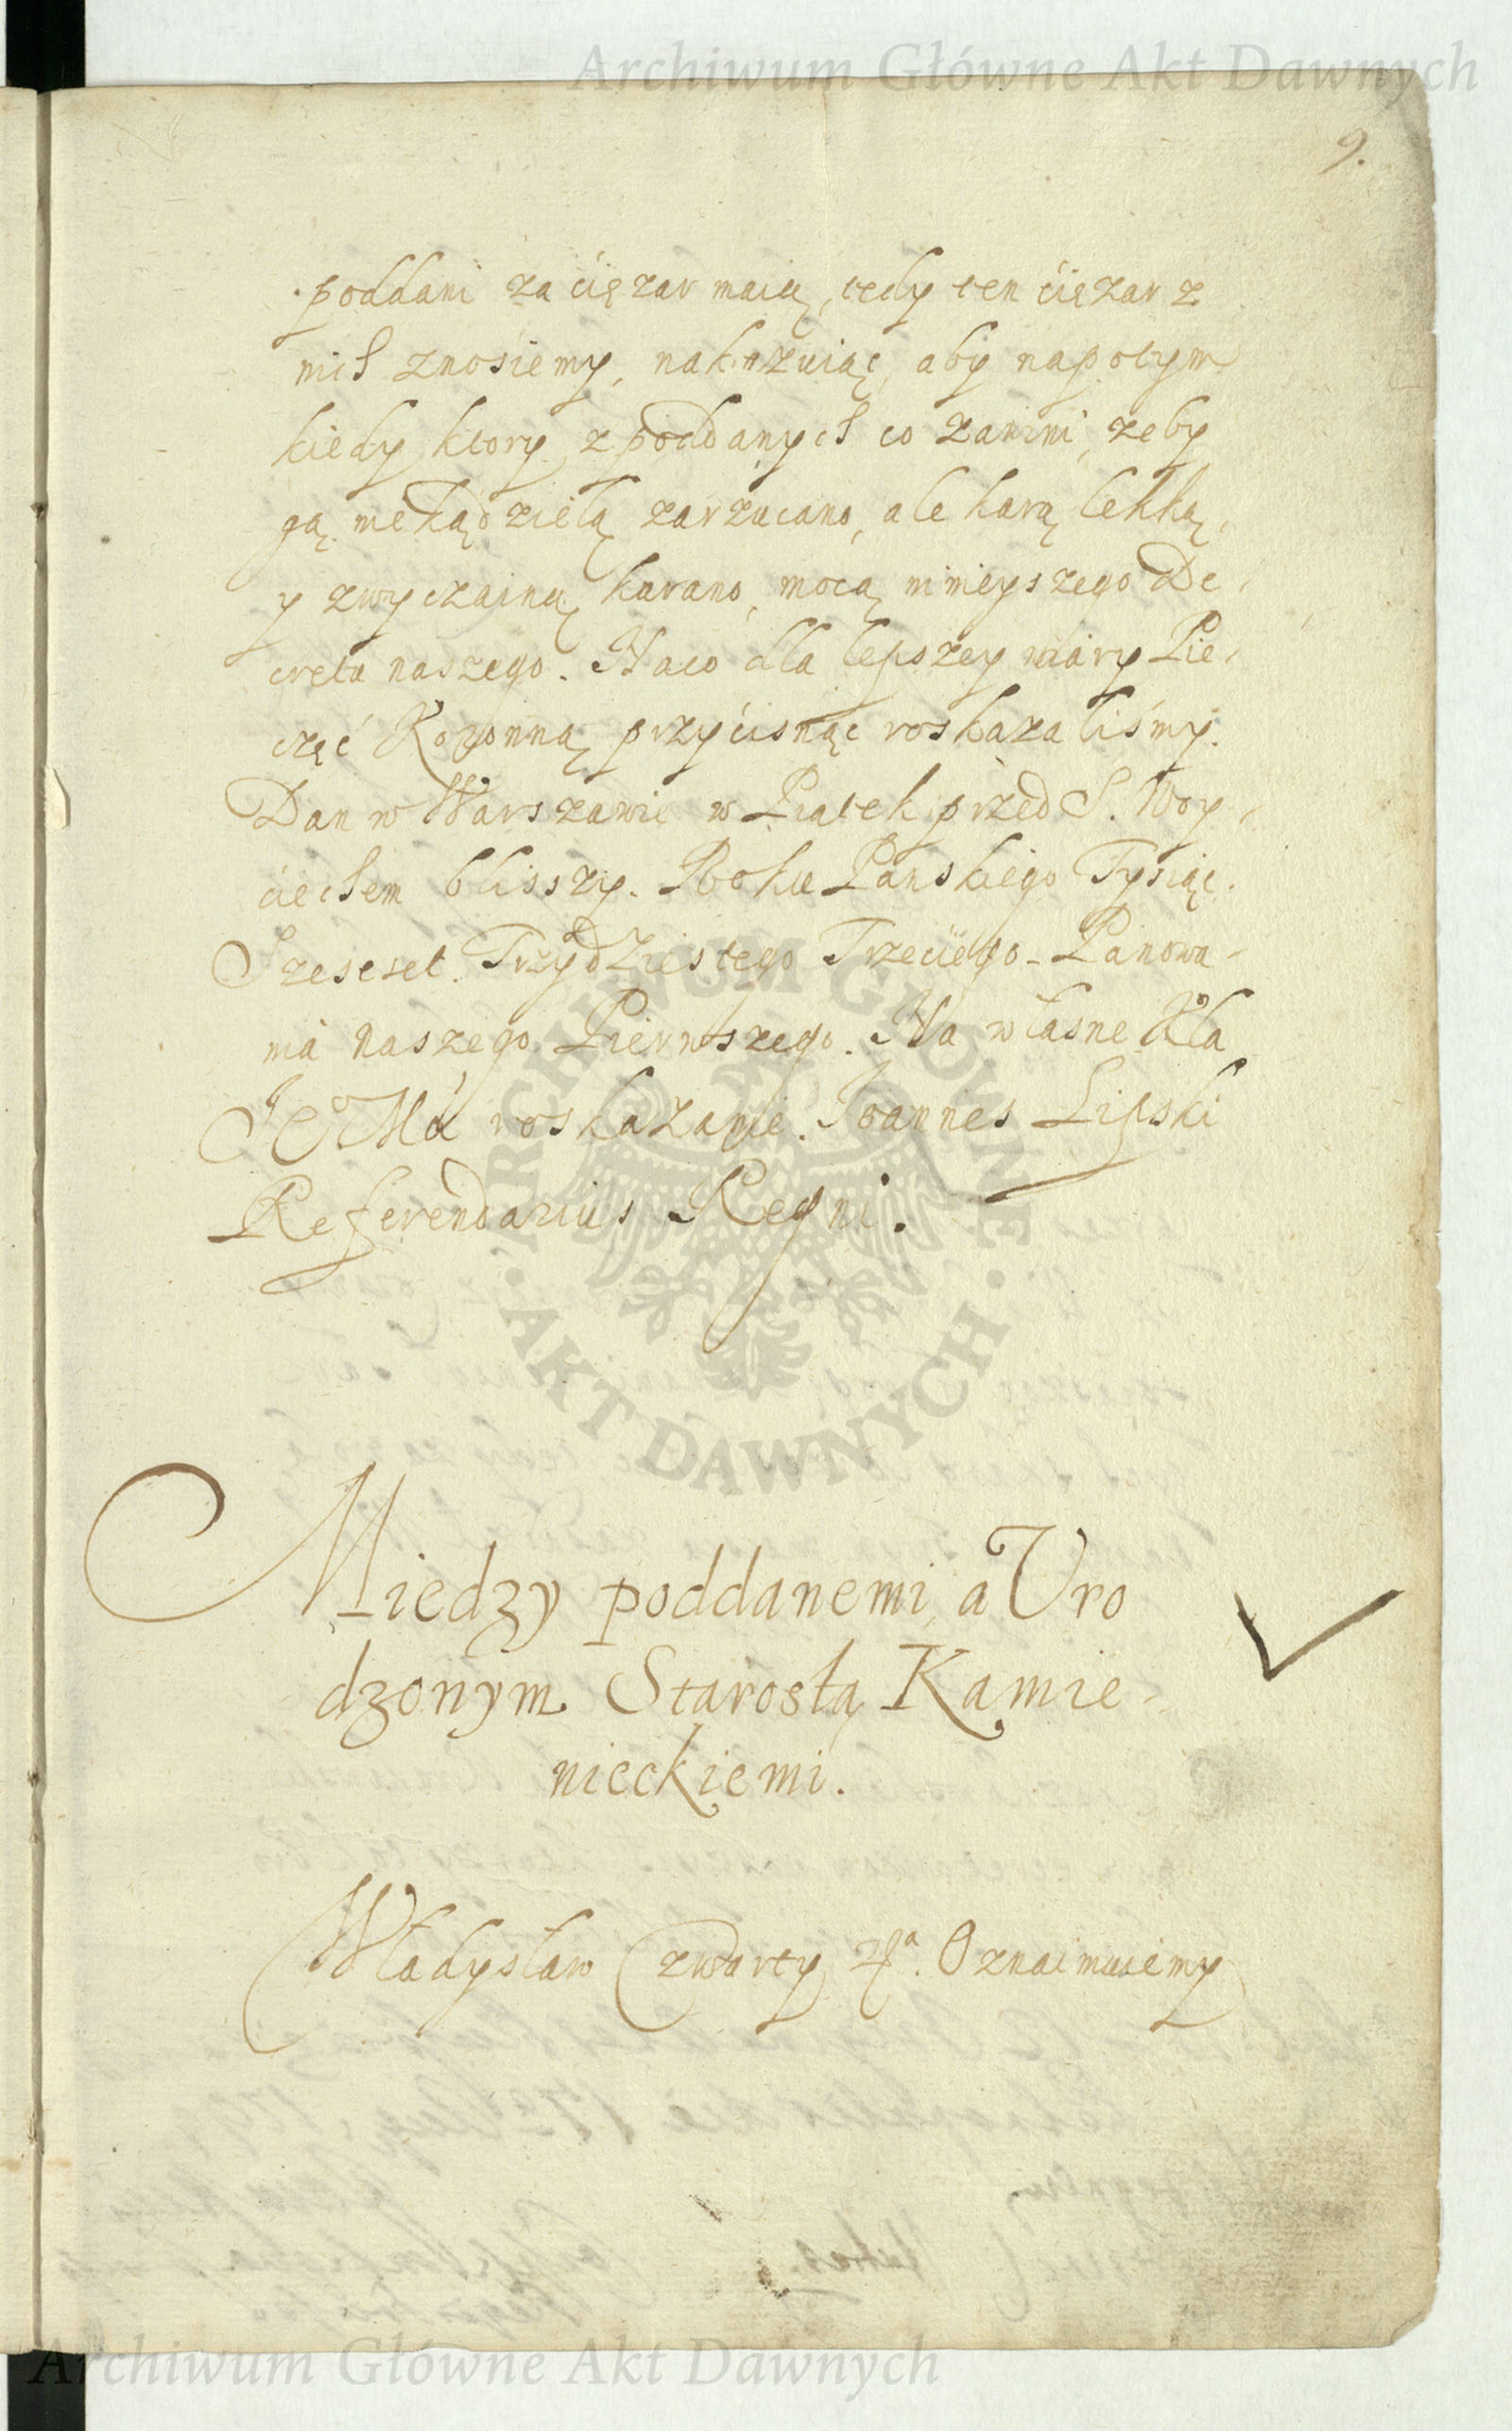 Archiwum Główne Akt Dawnych
9.
poddani za ciężar maią, tedy ten ciężar z
nich znosiemy, nakazuiąc, aby napotym
kiedy ktory z poddanych co zawini, żeby
gą nie kądzielą zarzucano, ale karą lekką,
y zwyczajną karano, mocą ninieyszego De
cretu naszego. Naco dla lepszey wiáry Pie-
częć Koronną przyćisnąc roskazaliśmy.
Dan w Warszawie w Piątek przed S. Woy-
ciechem blisszy. Roku Panskiego Tysiąc
Szescset Trzydziestego Trzeciego - Panowa-
nia naszego Pierwszego. Na własne Kla
JeºMći roskazanie. Joannes Lipski
Referendarius Regni.
ARCHIWUM GŁÓWNE · AKT DAWNYCH ·
Miedzy poddanemi a Uro
dzonym Starostą Kamie-
nieckiemi.
Władysław Czwarty &ª. Oznaimuiemy
Archiwum Główne Akt Dawnych